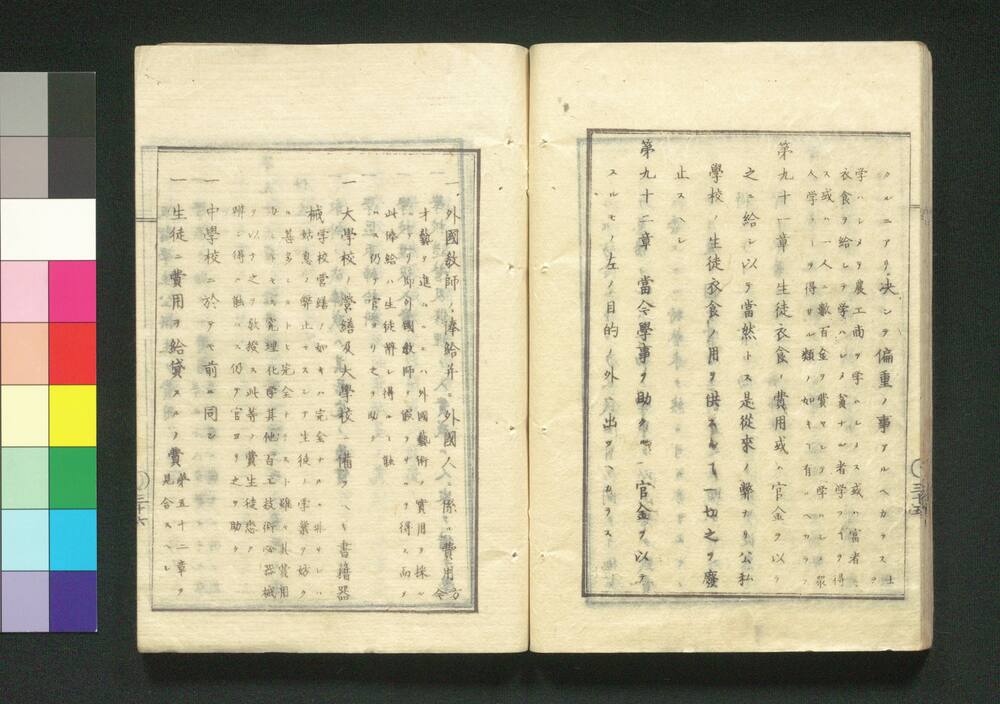 クルニアリ决シテ偏重ノ事アルヘカラス士ヲ
学ハシメテ農工商ヲ学ハシメス或ハ富者ニ
衣食ヲ給シテ学ハシメ貧ナル者学フヿヲ得
ス或ハ一人ニ數百金ヲ費サシメテ学ハシメ衆
人学フヿヲ得サル類ノ如キ有ルヘカラス
第九十一章 生徒衣食ノ費用或ハ官金ヲ以テ
之ニ給シ以テ當然トス是從來ノ弊ナリ公私
學校ノ生徒衣食ノ用ヲ供スルヿ一切之ヲ廢
止スヘシ
第九十二章 當今學事ヲ助クルニ官金ヲ以テ
スルモノ左ノ目的ノ外ニ出ツヘカラス
三十五
一 外國教師ノ俸給并ニ外國人ニ係ル費用方今
才藝ヲ進ルニハ外國藝術ノ實用ヲ採ル
即外國教師ヲ得ス而
此俸給ハ生徒辨シ得ル能
ハス仍テ官ヨリ之ヲ助ク
一 大學校ノ營繕及大學校ニ備フヘキ書籍器
械学校營繕ノ如キハ完全ナルニ非サレハ
姑息ノ弊止マスシテ生徒ノ学業ヲ妨ク
甚多シ 完全 雖モ其費用
究理化学其他百工技術必器械
ヲ以テ之ヲ教授ス此等ノ費生徒悉ク
辨シ得ル能ハス仍テ官ヨリ之ヲ助ク
一 中學校ニ於テモ前ニ同シ
一 生徒ニ費用ヲ給貸スルノ費第五十二章ヲ
見合スヘシ
三十六